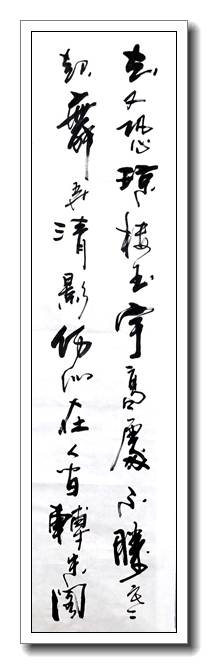 去又恐瓊樓玉宇高處不勝寒
起舞弄清影何似在人間轉朱閣